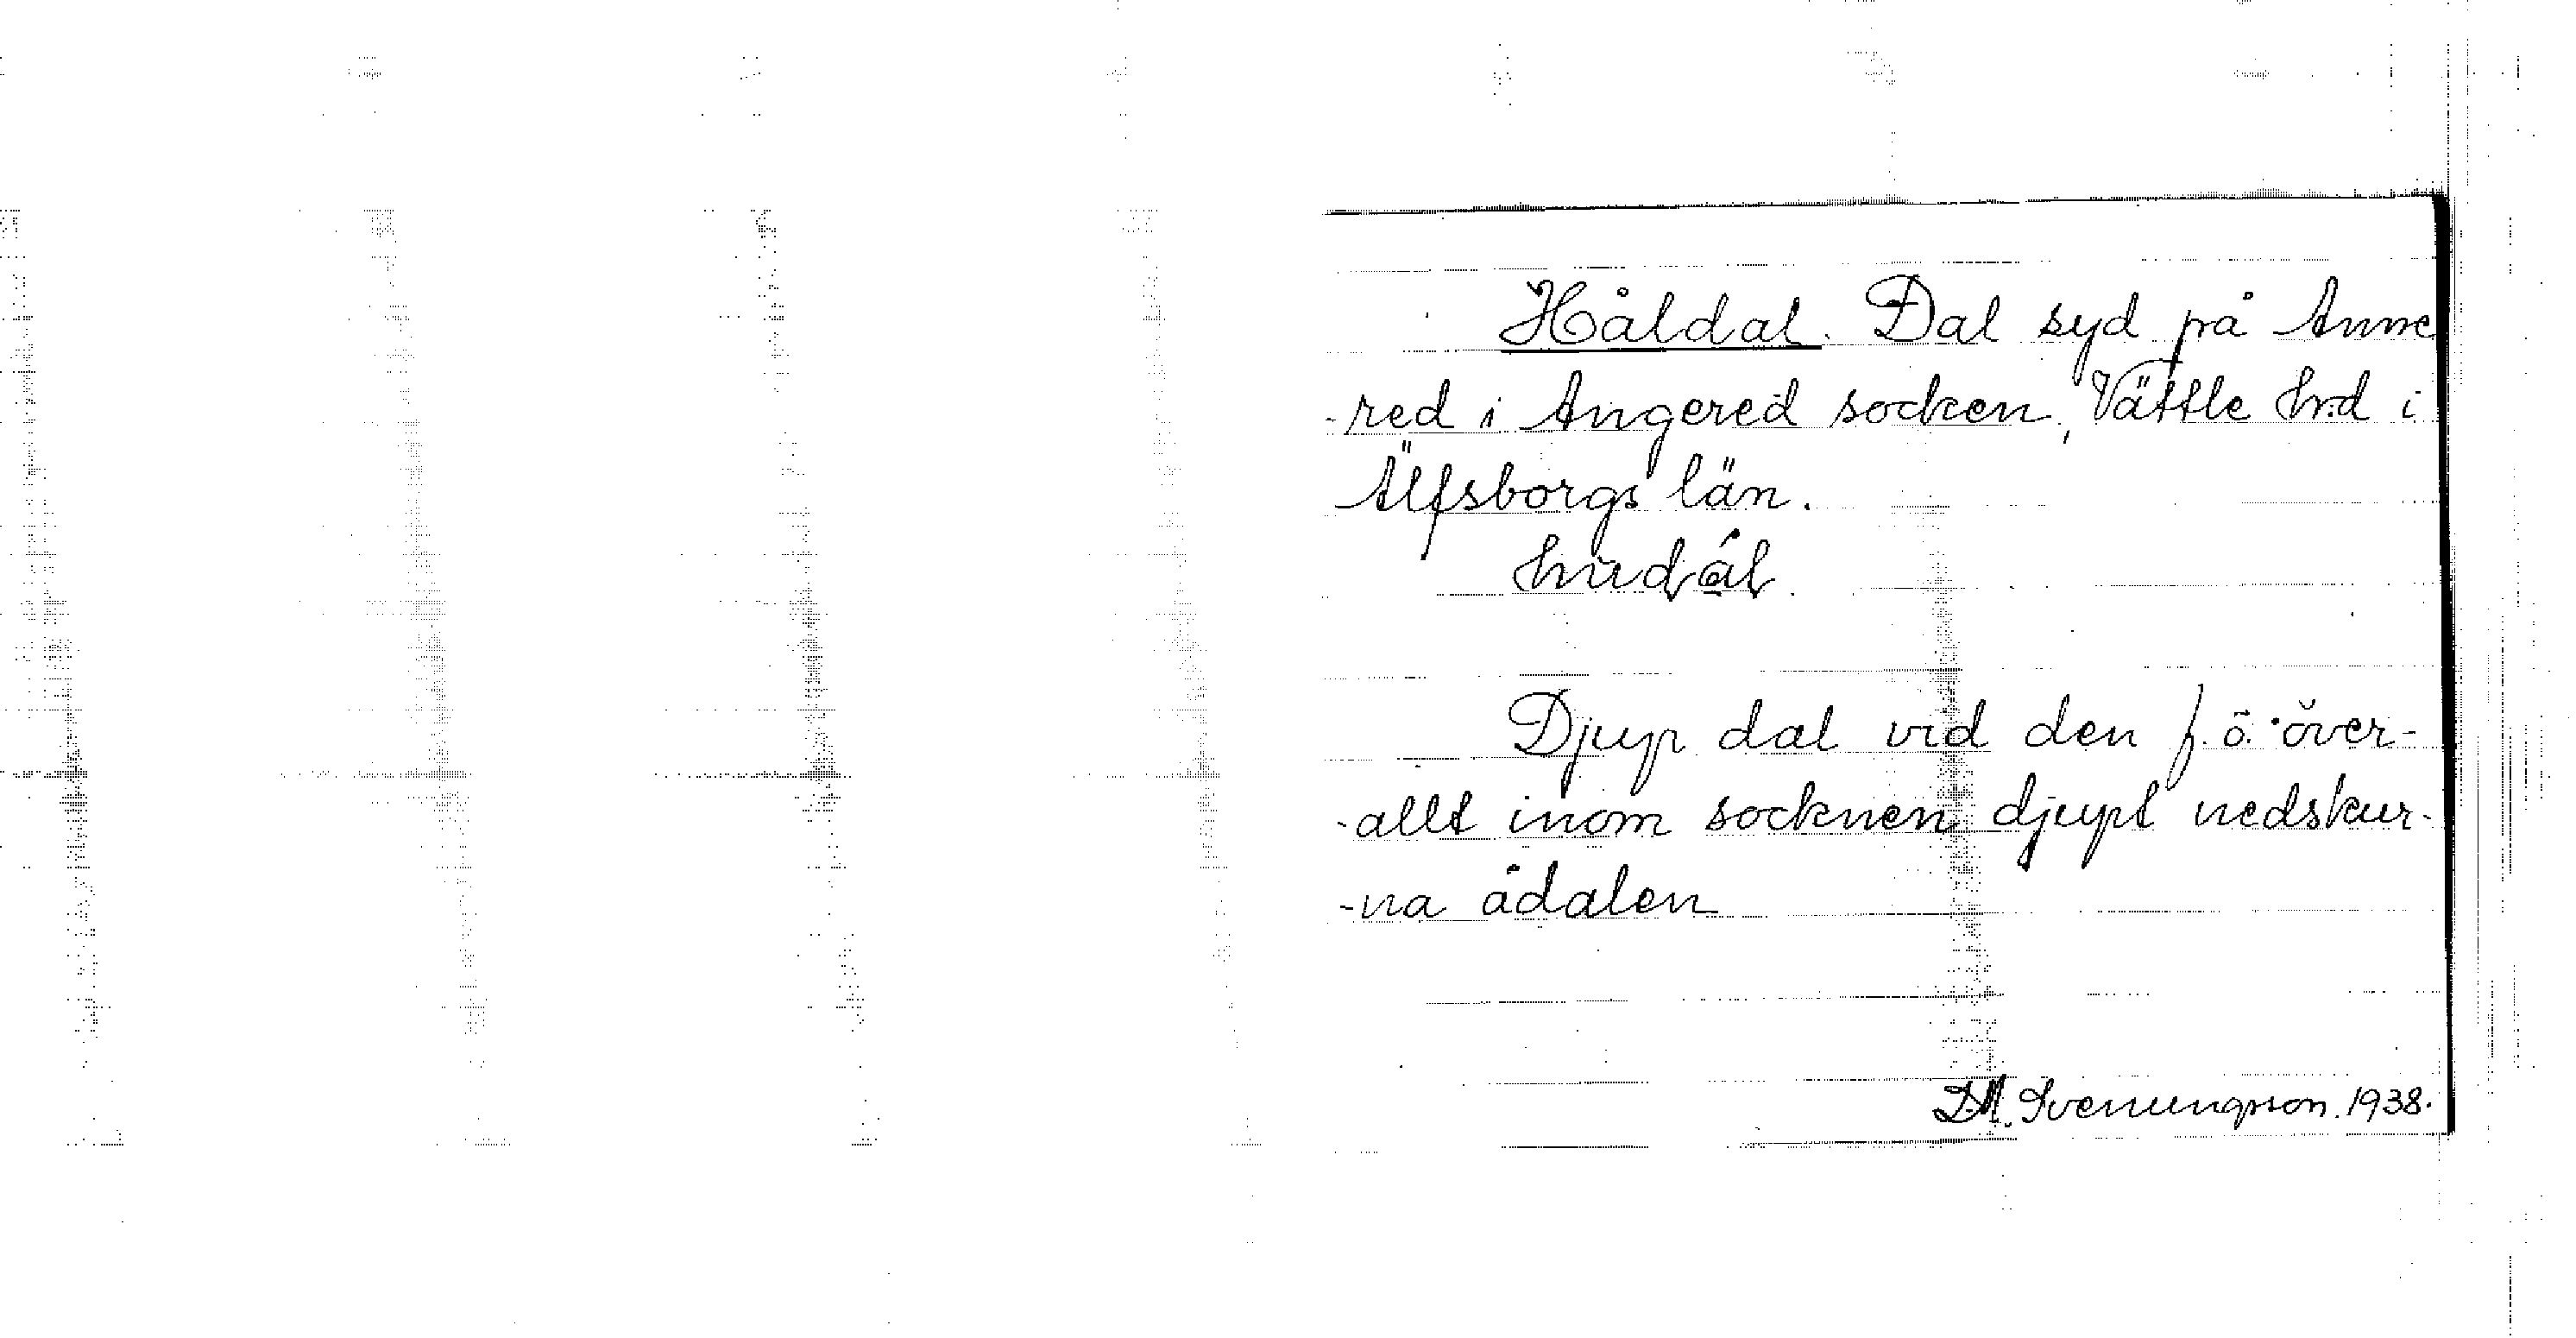 Håldal. Dal syd på Anne
-red i Angered socken, Vättle hrd i
Älfsborgs län.
Djup dal vid den f. ö. över-
-allt inom socknen djupt nedskur-
-na ådalen
D.M. Svenungsson. 1938.